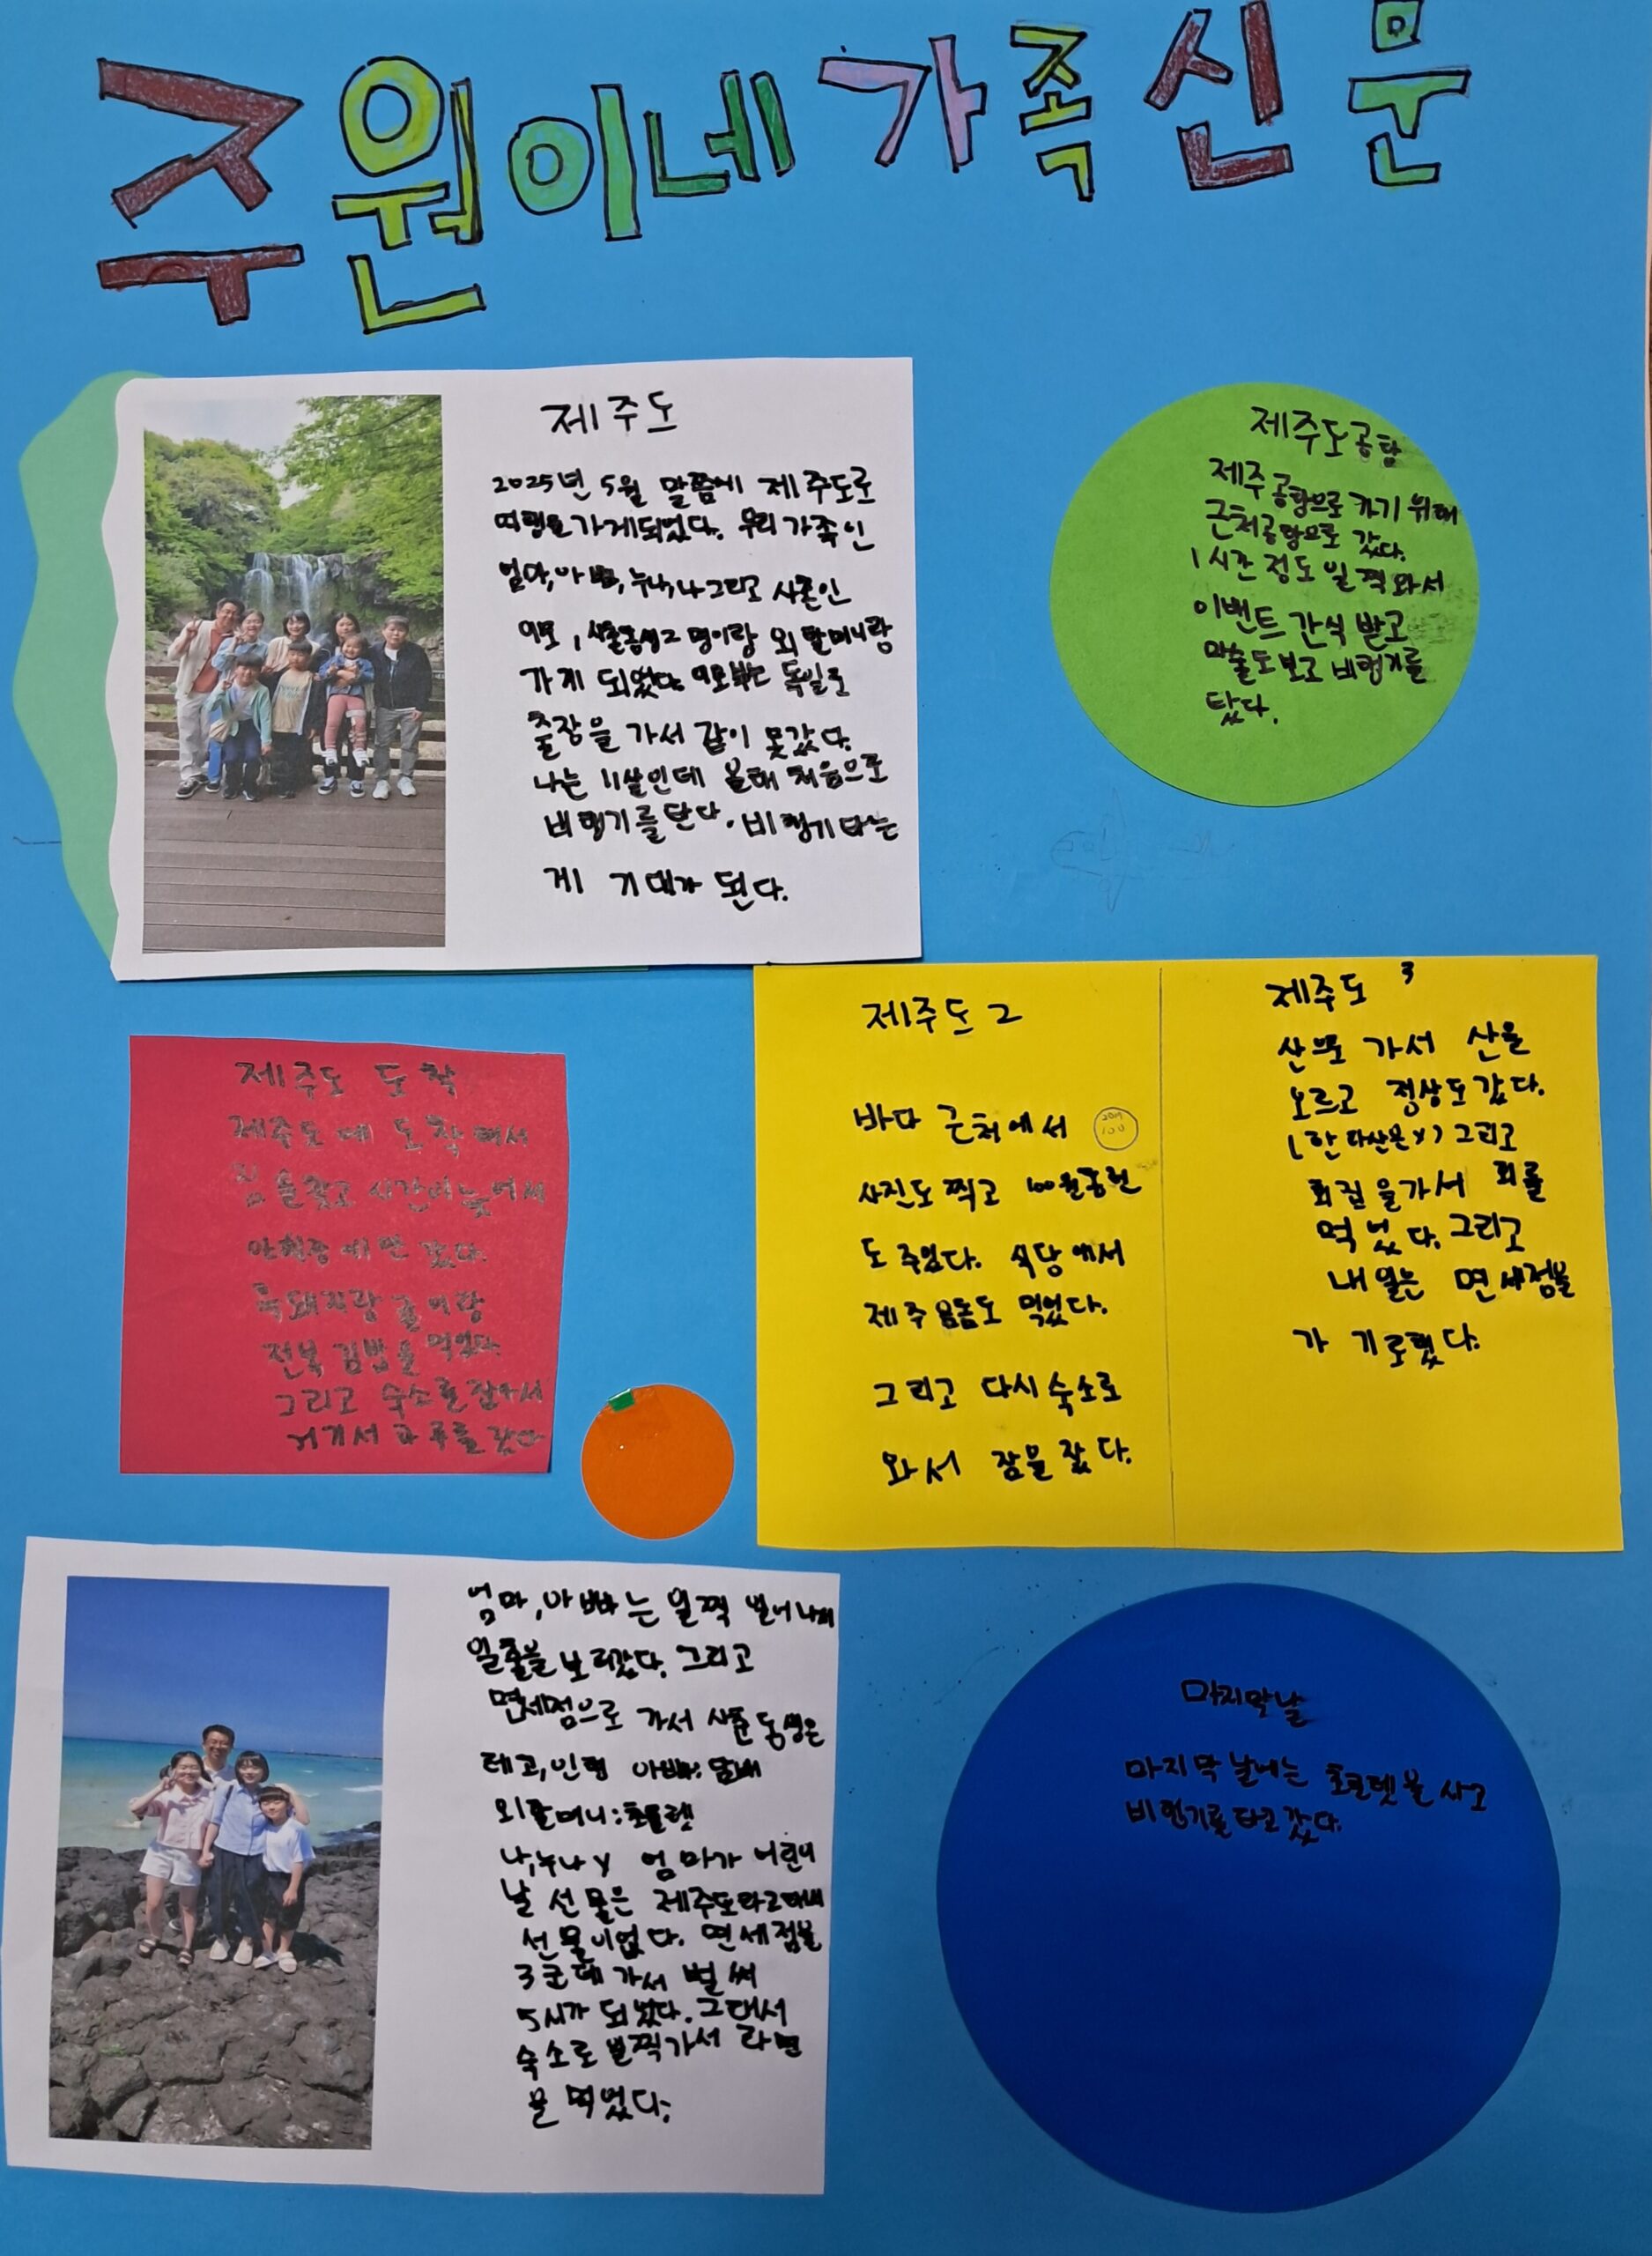 주원이네 가족신문
제주도
2025년 5월 말쯤에 제주도로
여행을 가게되었다. 우리 가족인
엄마, 아빠, 누나, 나 그리고 사촌인
이모, 사촌동생 2명이랑 외할머니랑
가게 되었다. 이모부는 독일로
출장을 가서 같이 못갔다.
나는 11살인데 올해 처음으로
비행기를 탄다. 비행기 타는
게 기대가 된다.
제주도공항
제주공항으로 가기 위해
근처공항으로 갔다.
1시간 정도 일찍 와서
이벤트 간식 받고
마술도 보고 비행기를
탔다.
제주도 도착
제주도에 도착해서
짐을찾고 시간이늦어서
만 갔다.
흑돼지랑 귤이랑
전복 김밥을 먹었다.
그리고 숙소를 잡아서
거기서 하루를 잤다
제주도 2
바다 근처에서
100
사진도 찍고 100원
도 주웠다. 식당에서
제주 도 먹었다.
그리고 다시 숙소로
와서 잠을 잤다.
제주도 3
산으로 가서 산을
오르고 정상도 갔다.
(한라산은 X) 그리고
회집을가서 회를
먹었다. 그리고
내일은 면세점을
가기로했다.
엄마, 아빠는 일찍 일어나서
일출을 보러갔다. 그리고
면세점으로 가서 사촌동생은
레고, 인형 아빠: 담배
외할머니: 초콜렛
나, 누나 X 엄마가 어린이
날 선물은 제주도라고해서
선물이없다. 면세점을
3군데 가서 벌써
5시가 되었다. 그래서
숙소로 일찍가서 라면
을 먹었다.
마지막날
마지막날에는 초코렛을 사고
비행기를타고 갔다.